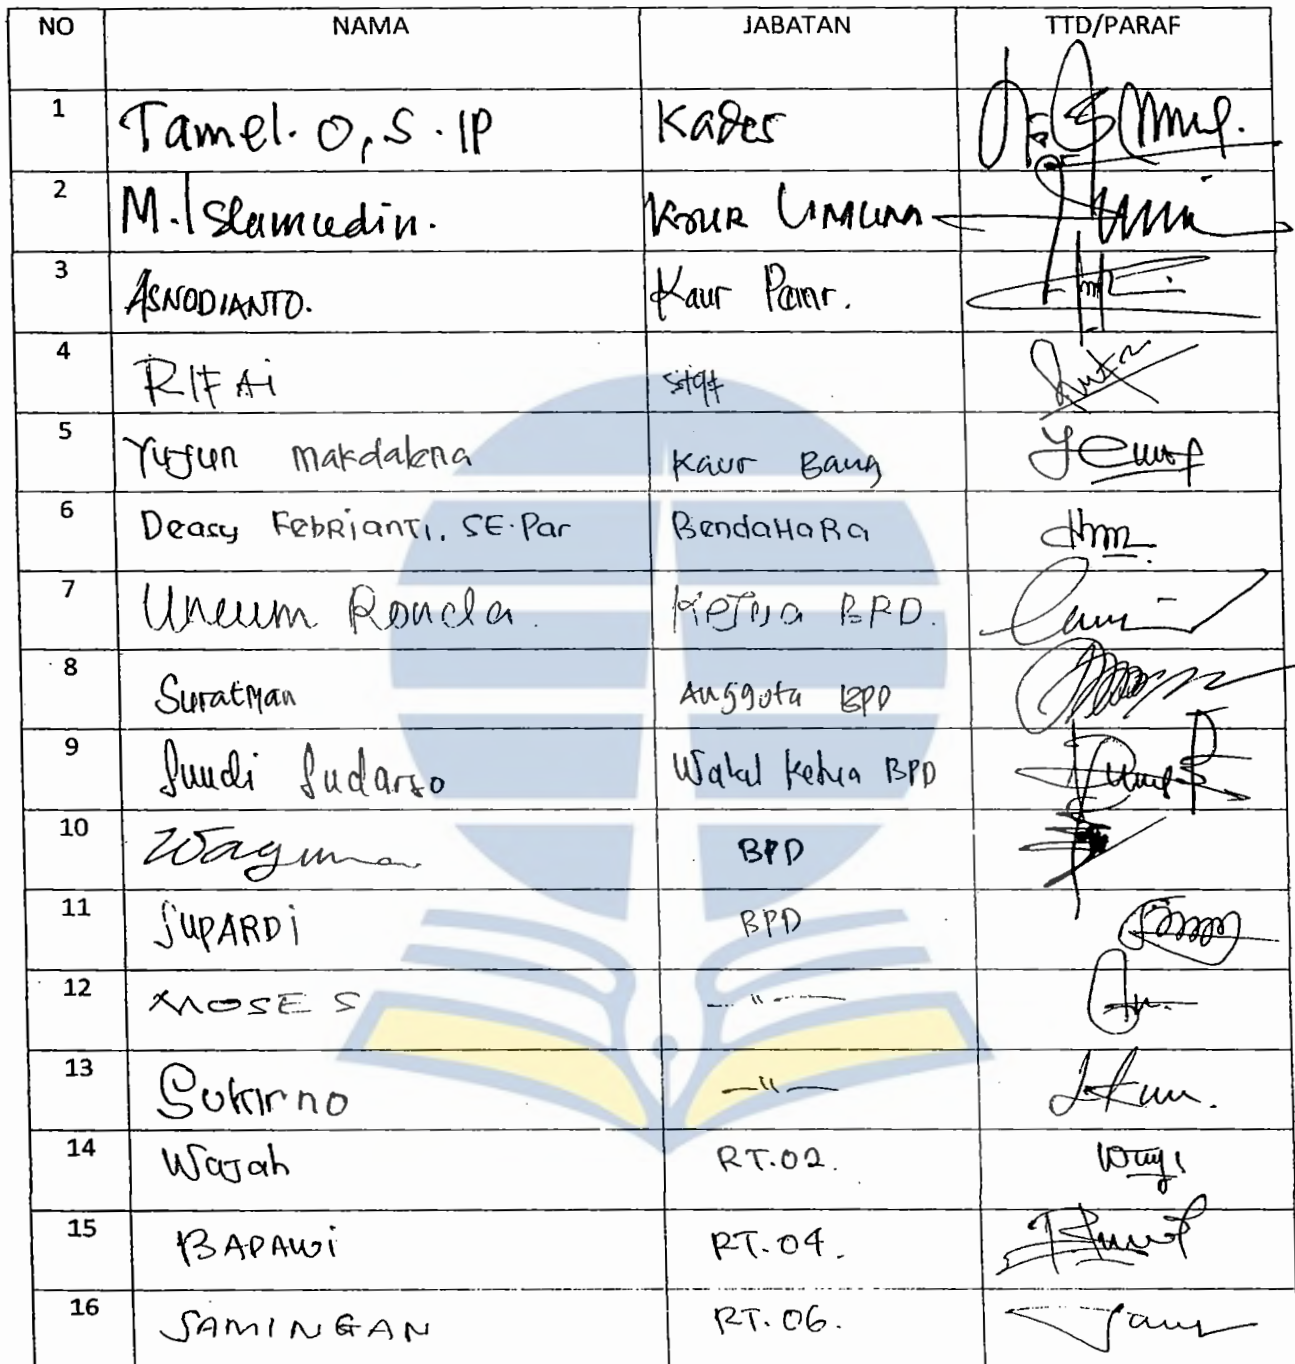 NO NAMA JABATAN TTD/PARAF
1 Tamel. O, S. IP Kades
2 M. Islamudin. Kaur Umum
3 ASNODIANTO. Kaur Pem.
4 RIFAi staf
5 Yuyun makdalena Kaur Bang
6 Deasy FebRianTi, SE.Par BendaHaRa
7 Ketua BPD.
8 Suratman Anggota BPD
9 Sudarso Wakil Ketua BPD
10 BPD
11 SUPARDi BPD
12 MOSES — " —
13 Sukirno — " —
14 Wajah RT.02.
15 BAPAWi RT.04.
16 SAMINGAN RT.06.